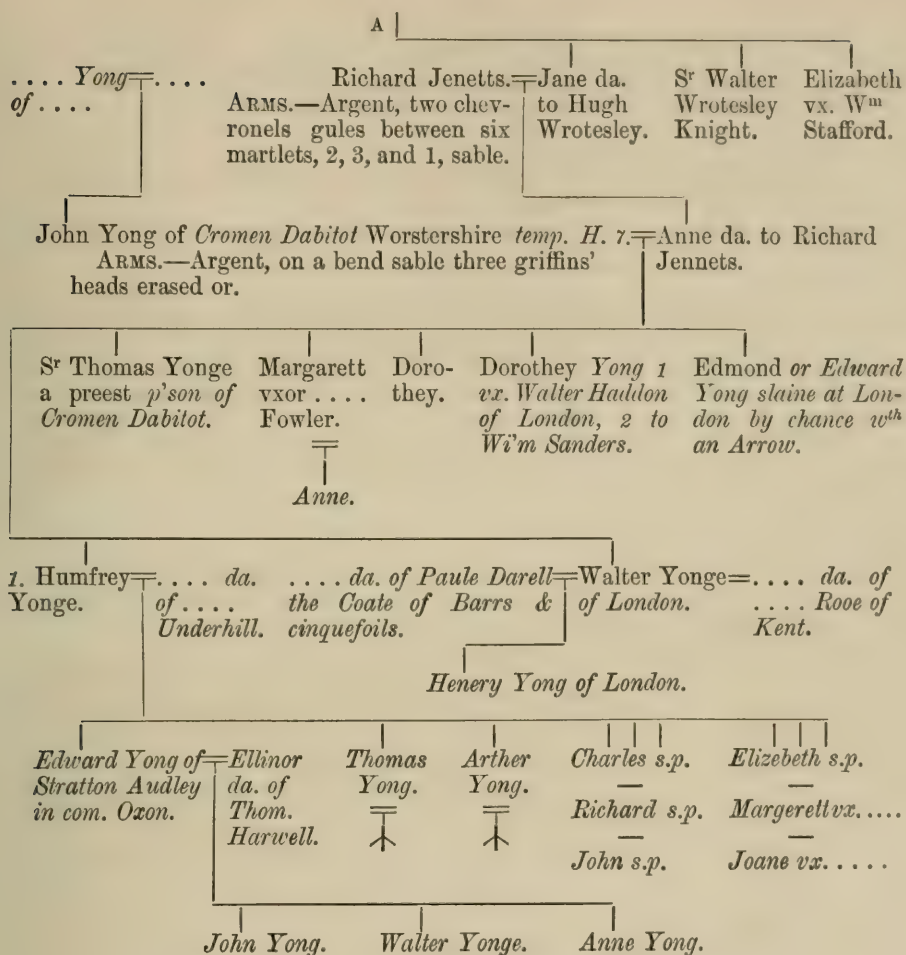 A
. . . . Yong=. . . .
of . . . .
Richard Jenetts.=Jane da.
ARMS.—Argent, two chev-
ronels gules between six
martlets, 2, 3, and 1, sable.
to Hugh
Wrotesley.
Sr Walter
Wrotesley
Knight.
Elizabeth
vx. Wm
Stafford.
John Yong of Cromen Dabitot Worstershire temp. H. 7.=Anne da. to Richard
ARMS.—Argent, on a bend sable three griffins'
heads erased or.
Jennets.
Sr Thomas Yonge
a preest p'son of
Cromen Dabitot.
Margarett
vxor . . . .
Fowler.
Anne.
Doro-
they.
Dorothey Yong 1
vx. Walter Haddon
of London, 2 to
Wi'm Sanders.
Edmond or Edward
Yong slaine at Lon-
don by chance wth
an Arrow.
1. Humfrey=. . . . da.
Yonge.
of . . . .
Underhill.
. . . . da. of Paule Darell=Walter Yonge=. . . . da. of
the Coate of Barrs &
cinquefoils.
of London.
. . . . Rooe of
Kent.
Henery Yong of London.
Edward Yong of=Ellinor
Stratton Audley
in com. Oxon.
da. of
Thom.
Harwell.
Thomas
Yong.
Arther
Yong.
Charles s.p.
—
Richard s.p.
—
John s.p.
Elizebeth s.p.
—
Margerett vx. . . . .
—
Joane vx. . . . .
John Yong.
Walter Yonge.
Anne Yong.